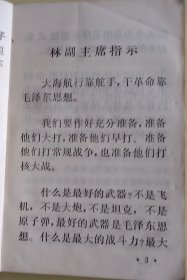 林副主席指示
大海航行靠舵手，干革命靠
毛泽东思想。
我们要作好充分准备，准备
他们大打，准备他们早打。准备
他们打常规战争，也准备他们打
核大战。
什么是最好的武器？不是飞
机，不是大炮，不是坦克，不是
原子弹，最好的武器是毛泽东思
想。什么是最大的战斗力？最大
· 3 ·